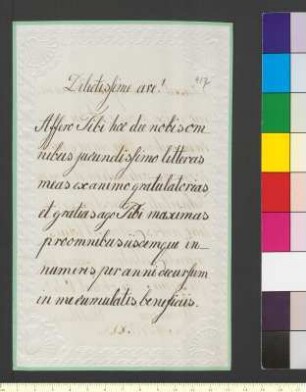 Dilectissime ave!
417
Affero Tibi hoc die nobis om-
nibus jucundissimo litteras
meas ex animo gratulatorias,
et gratias ago Tibi maximas
pro omnibus iisdemque in-
numeris per anni decursum
in me cumulatis beneficiis.